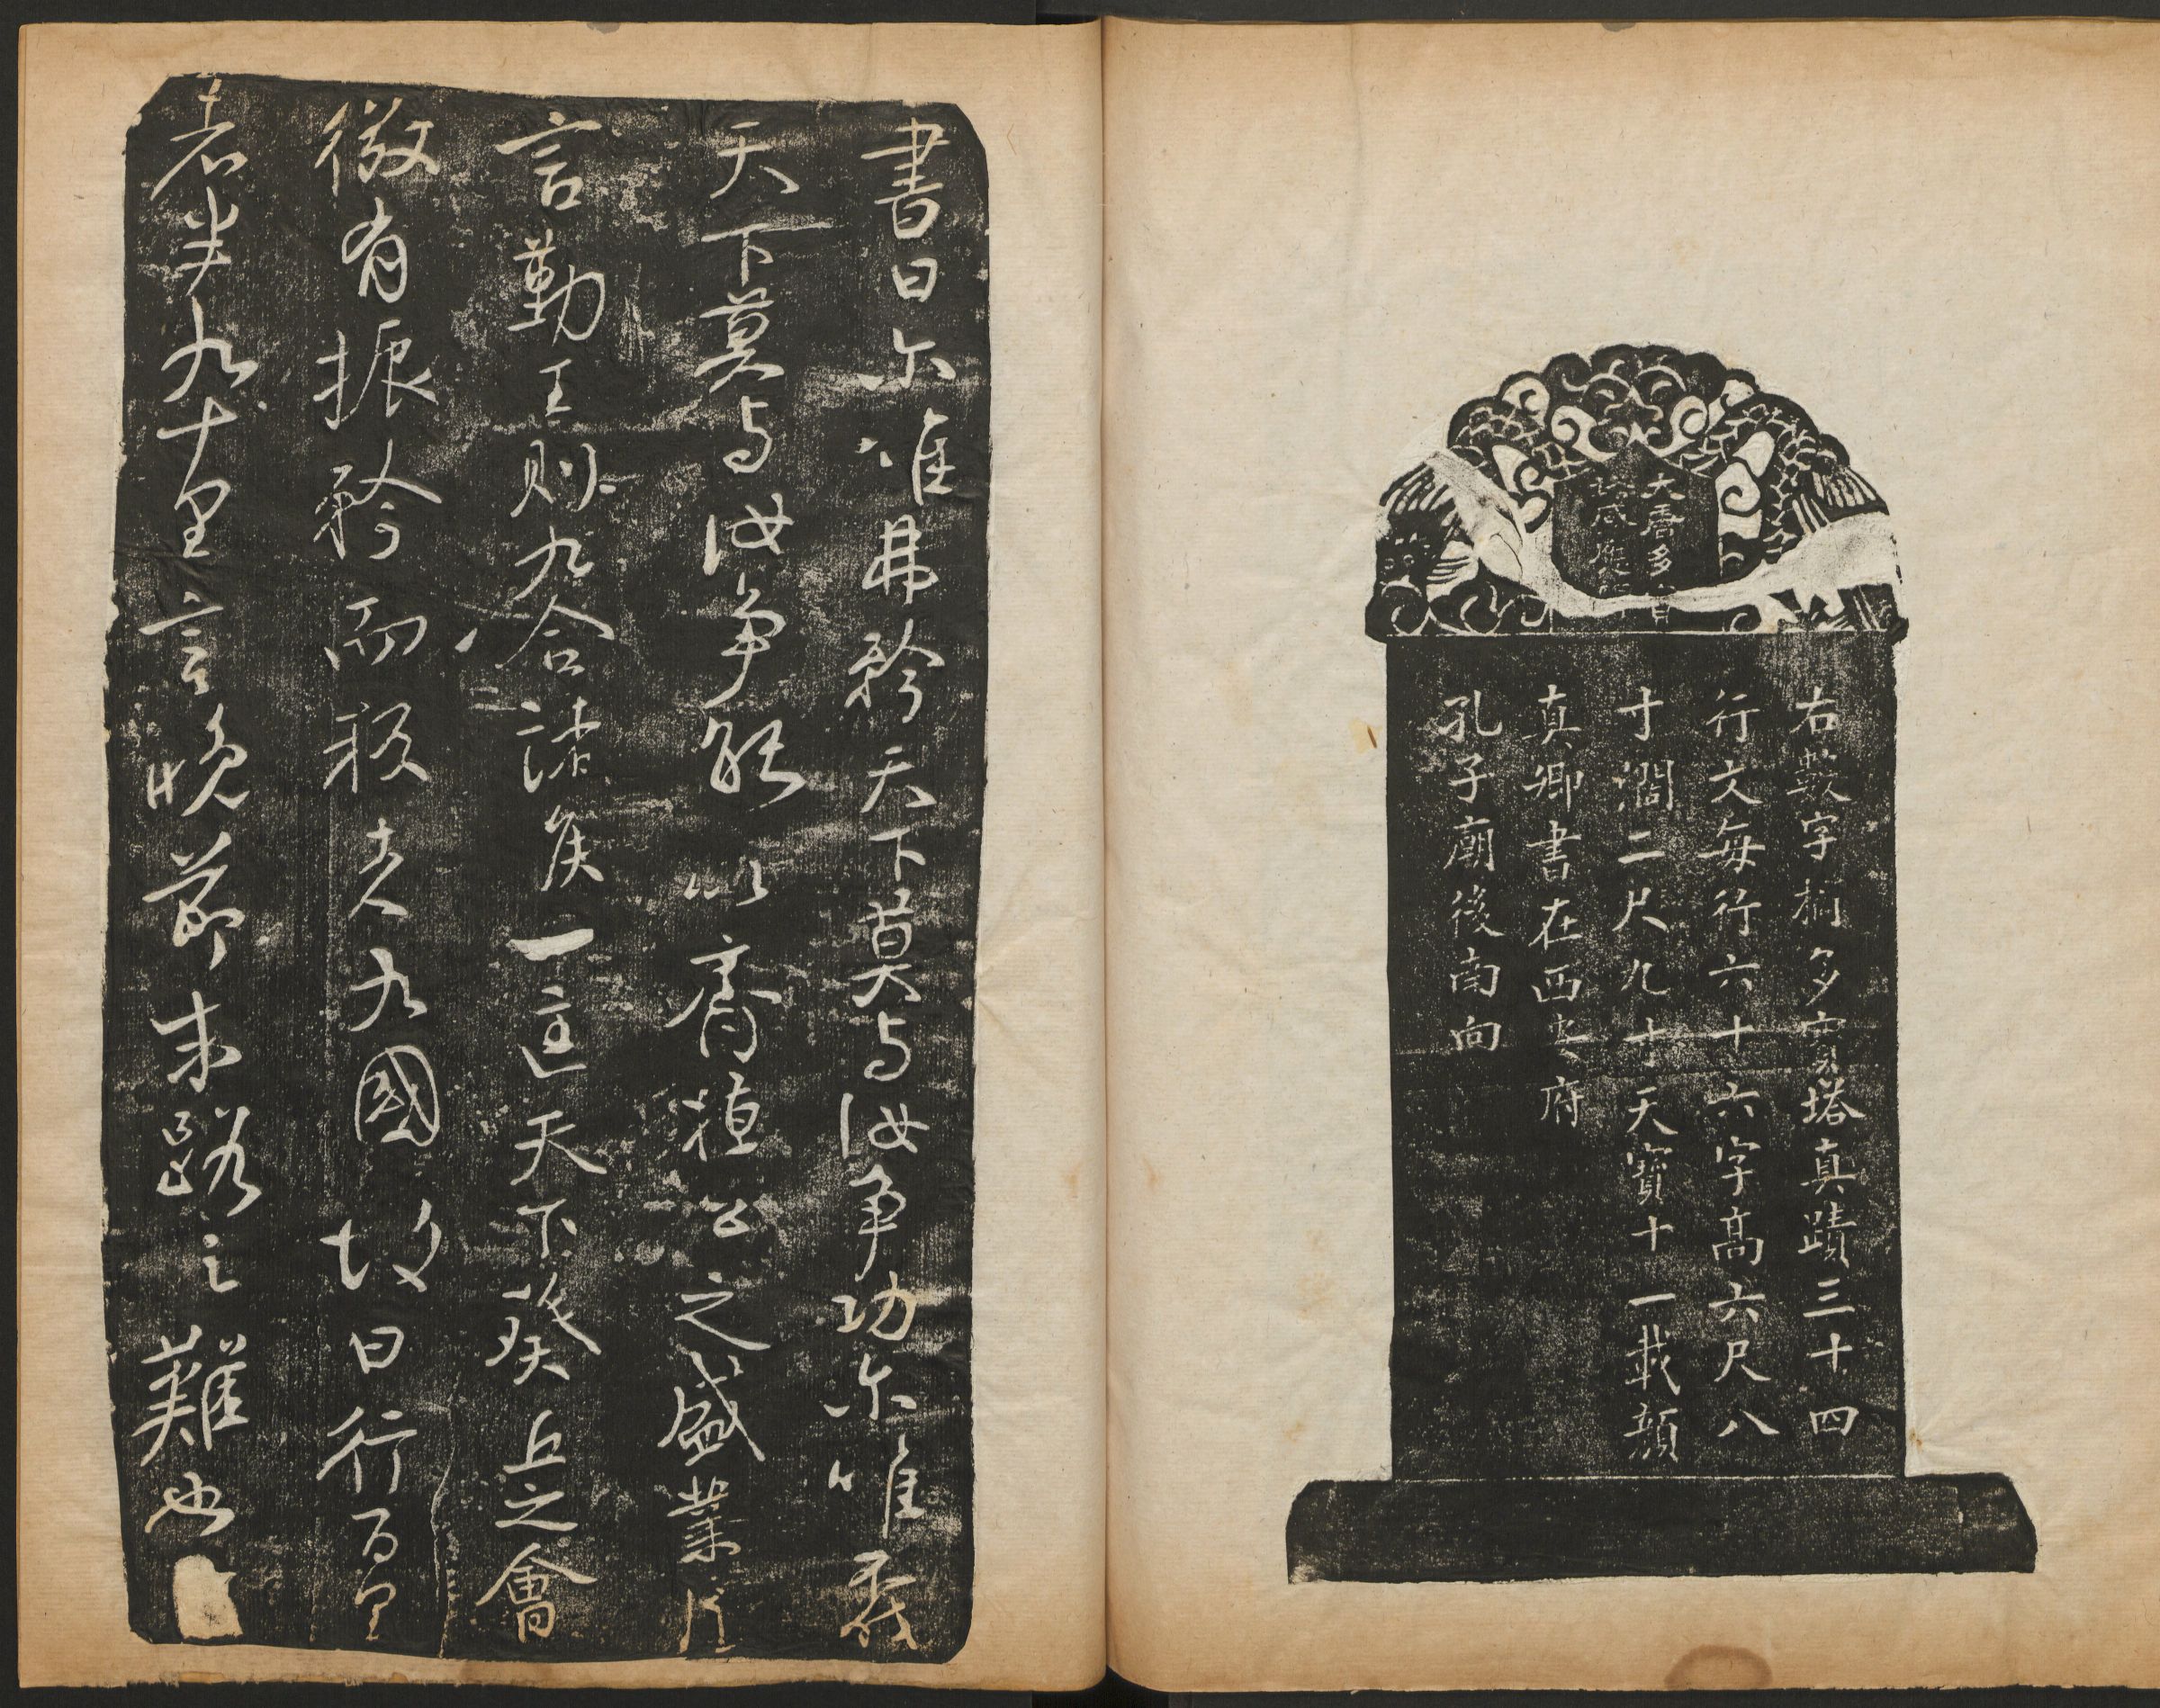 大唐多寶
塔感應
右數字榻多寶塔真蹟三十四
行文每行六十六字高六尺八
寸濶二尺九寸天寶十一載顏
真卿書在西安府
孔子廟後南向
書曰尓唯弗矜天下莫与汝争功尓唯不伐
天下莫与汝争能以齊桓公之盛業片
言勤王則九合諸侯一匡天下葵丘之會
微有振矜而叛者九國故曰行百里
者半九十里言晚節末路之難也